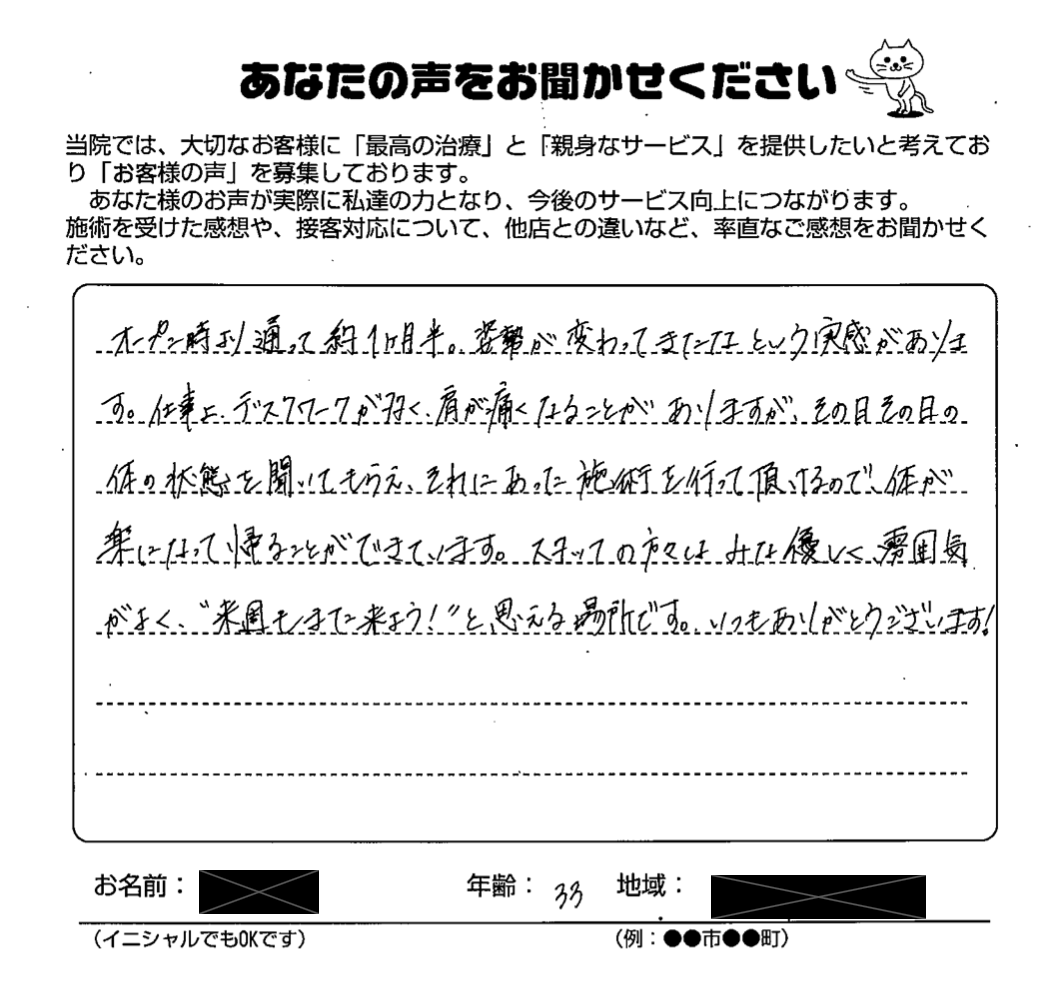 あなたの声をお聞かせください
当院では、大切なお客様に「最高の治療」と「親身なサービス」を提供したいと考えてお
り「お客様の声」を募集しております。
あなた様のお声が実際に私達の力となり、今後のサービス向上につながります。
施術を受けた感想や、接客対応について、他店との違いなど、率直なご感想をお聞かせく
ださい。
オープン時より通って約1ヶ月半。姿勢が変わってきたなという実感がありま
す。仕事上、デスクワークが多く、肩が痛くなることがありますが、その日その日の
体の状態を聞いてもらえ、それにあった施術を行って頂けるので、体が
楽になって帰ることができています。スタッフの方々はみな優しく、雰囲気
がよく、“来週もまた来よう!”と思える場所です。いつもありがとうございます!
お名前： 年齢：33 地域：
（イニシャルでもOKです） （例：●●市●●町）